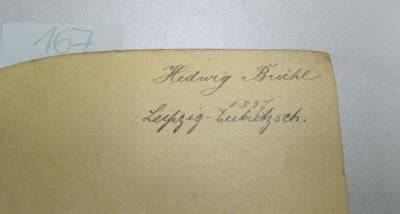 167
Hedwig Brühl
1887
Leipzig-Eutritzsch.